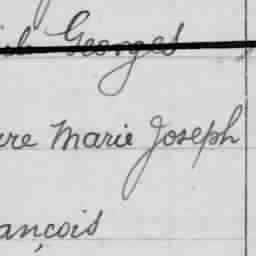 Georges
rre Marie Joseph
ançois